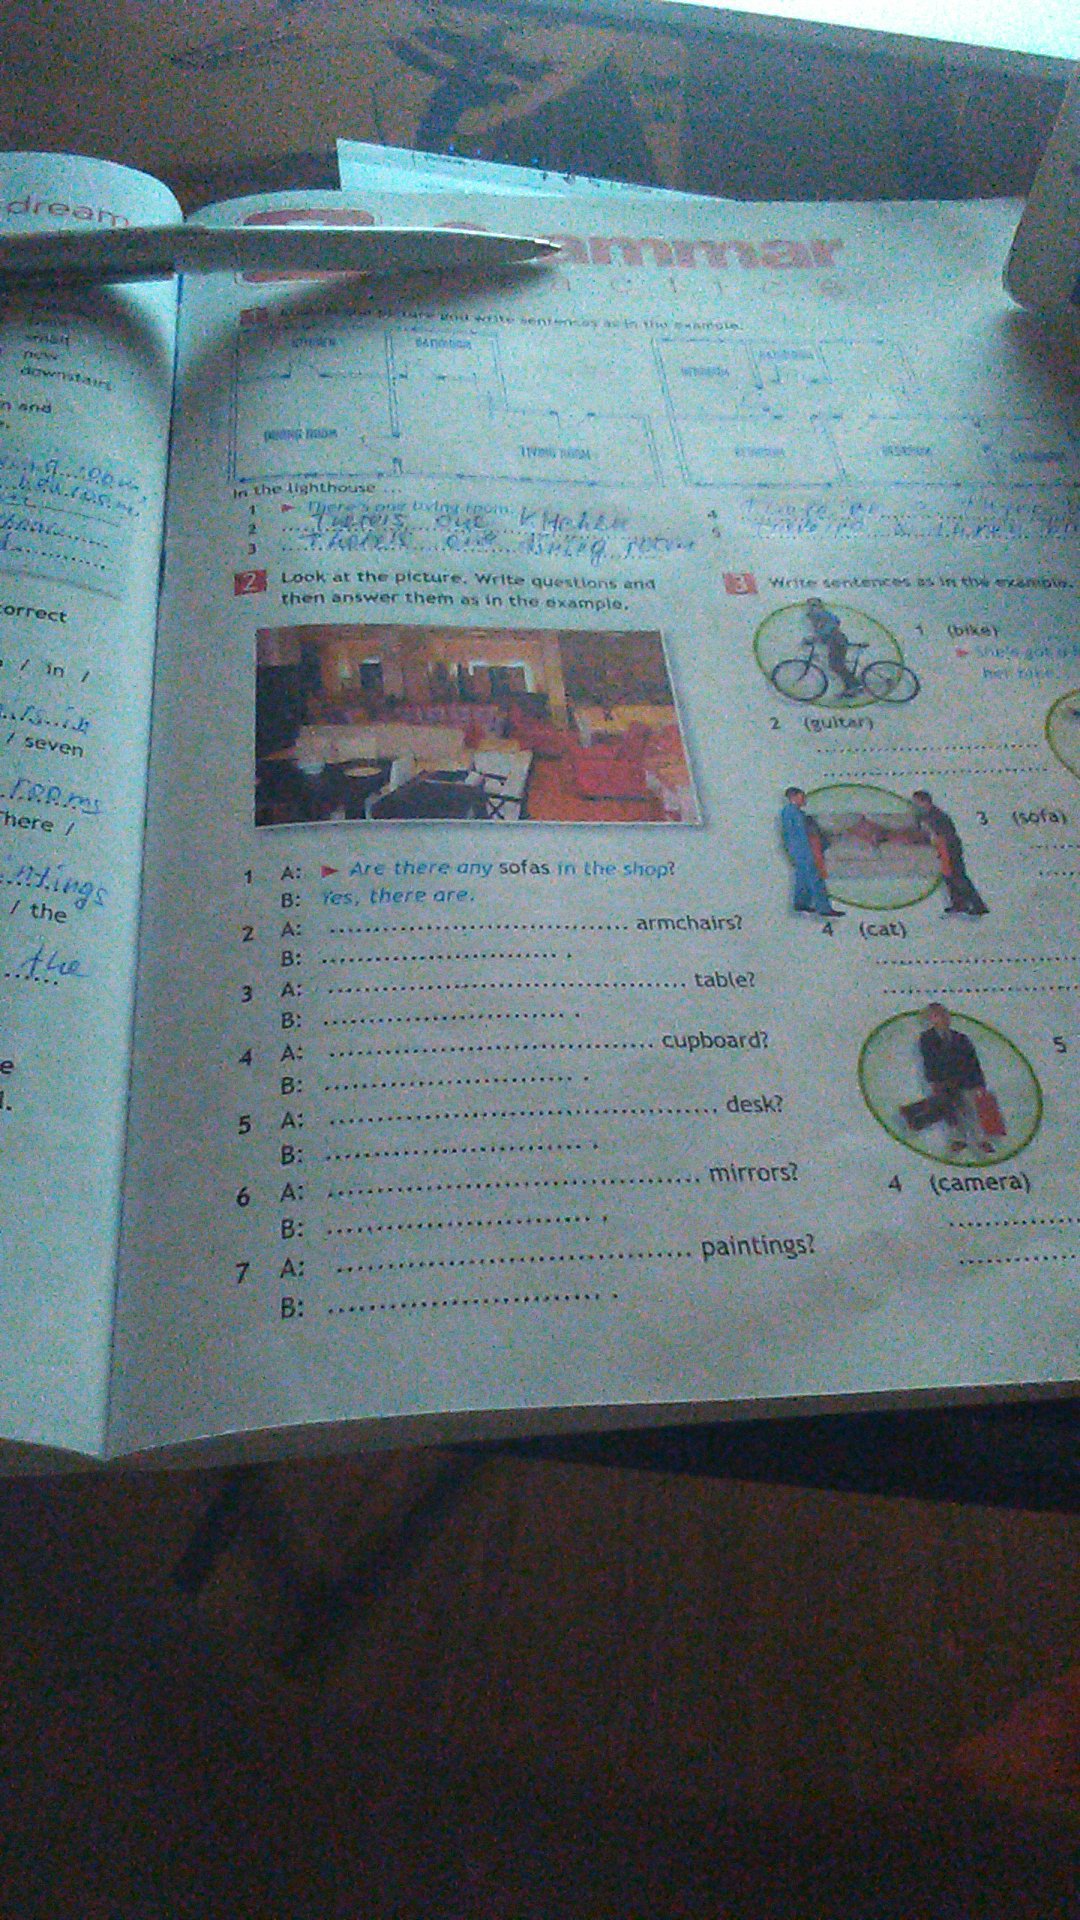 dream
small
new
downstairs
n and
room,
bedroom,
correct
/ in /
is in
/ seven
rooms
There /
intings
/ the
the
e
ammar
picture and write sentences as in the example.
KITCHEN
BATHROOM
DINING ROOM
LIVING ROOM
BEDROOM
BATHROOM
BEDROOM
BEDROOM
In the lighthouse ...
1 There's one living room.
2 one
3 Thereis one dining room
4
5
2 Look at the picture. Write questions and
then answer them as in the example.
1 A: Are there any sofas in the shop?
B: Yes, there are.
2 A: armchairs?
B:
3 A: table?
B:
4 A: cupboard?
B:
5 A: desk?
B:
6 A: mirrors?
B:
7 A: paintings?
B:
3 Write sentences as in the example.
1 (bike)
She's got a
her bike.
2 (guitar)
3 (sofa)
4 (cat)
5
4 (camera)